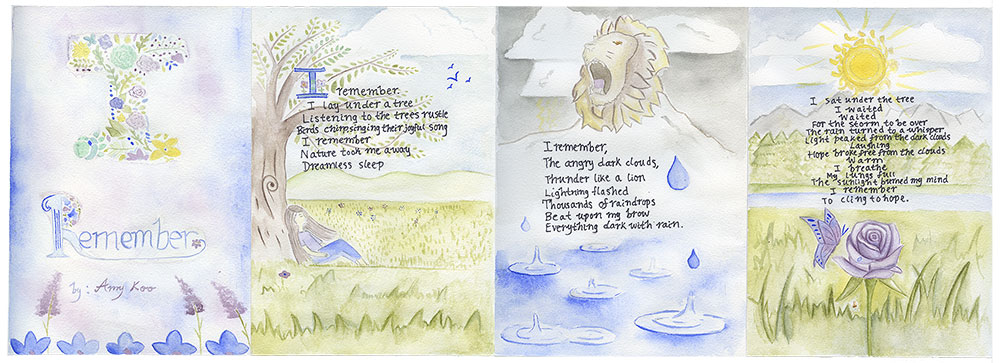 I
Remember
by: Amy Koo
I remember.
I lay under a tree
Listening to the trees rustle
Birds chirpsinging their joyful song
I remember
Nature took me away
Dreamless sleep
I remember,
The angry dark clouds,
Thunder like a lion
Lightning flashed
Thousands of raindrops
Beat upon my brow
Everything dark with rain.
I sat under the tree
I waited
Waited
For the storm to be over
The rain turned to a whisper
Light peaked from the dark clouds
Laughing
Hope broke free from the clouds
Warm
I breathe
My lungs full
The sunlight burned my mind
I remember
To cling to hope.